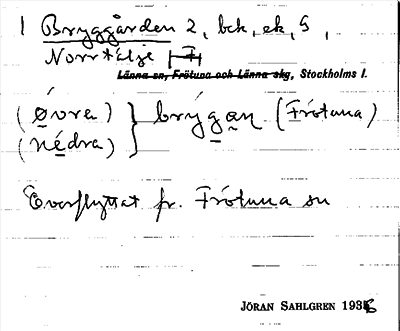 1 Bryggården 2, bck, ek, S,
Norrtälje
Länna sn, Frötuna och Länna skg, Stockholms l.
(øvra) } brýgan (Frötuna)
(nedra)
Överflyttat fr. Frötuna sn
JÖRAN SAHLGREN 1936